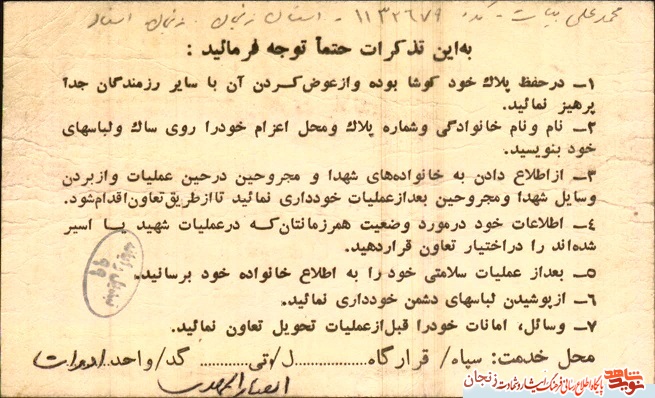 محمدعلی بیات - کد: ۱۱۳۲۶۷۹ - استان زنجان. زنجان
به این تذکرات حتماً توجه فرمائید :
۱ــ درحفظ پلاك خود کوشا بوده و ازعوض‌کردن آن با سایر رزمندگان جداً
پرهیز نمائید.
۲ــ نام ونام خانوادگی وشماره پلاك ومحل اعزام خودرا روی ساك ولباسهای
خود بنویسید.
۳ــ ازاطلاع دادن به خانواده‌های شهدا و مجروحین درحین عملیات وازبردن
وسایل شهدا ومجروحین بعدازعملیات خودداری نمائید تا ازطریق تعاون اقدام شود.
٤ــ اطلاعات خود درمورد وضعیت همرزمانتان‌که درعملیات شهید یا اسیر
شده‌اند را دراختیار تعاون قراردهید.
۵ــ بعداز عملیات سلامتی خود را به اطلاع خانواده خود برسانید.
۶ــ ازپوشیدن لباسهای دشمن خودداری نمائید.
۷ــ وسائل، امانات خودرا قبل‌ازعملیات تحویل تعاون نمائید.
محل خدمت: سپاه/ قرارگاه.................ل/تی............ گد/واحد ادوات
انصارالمهدی
شاهد نوید
پایگاه اطلاع رسانی فرهنگ ایثار و شهادت زنجان